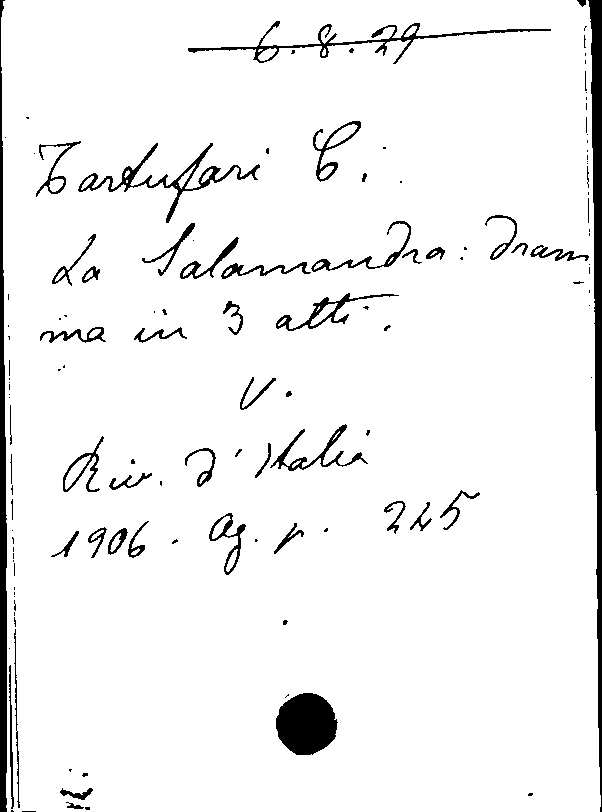 6.8.29
Tartufari C.
La Salamandra: dram
ma in 3 atti.
V.
Riv. d'Italia
1906. Ag. p. 225